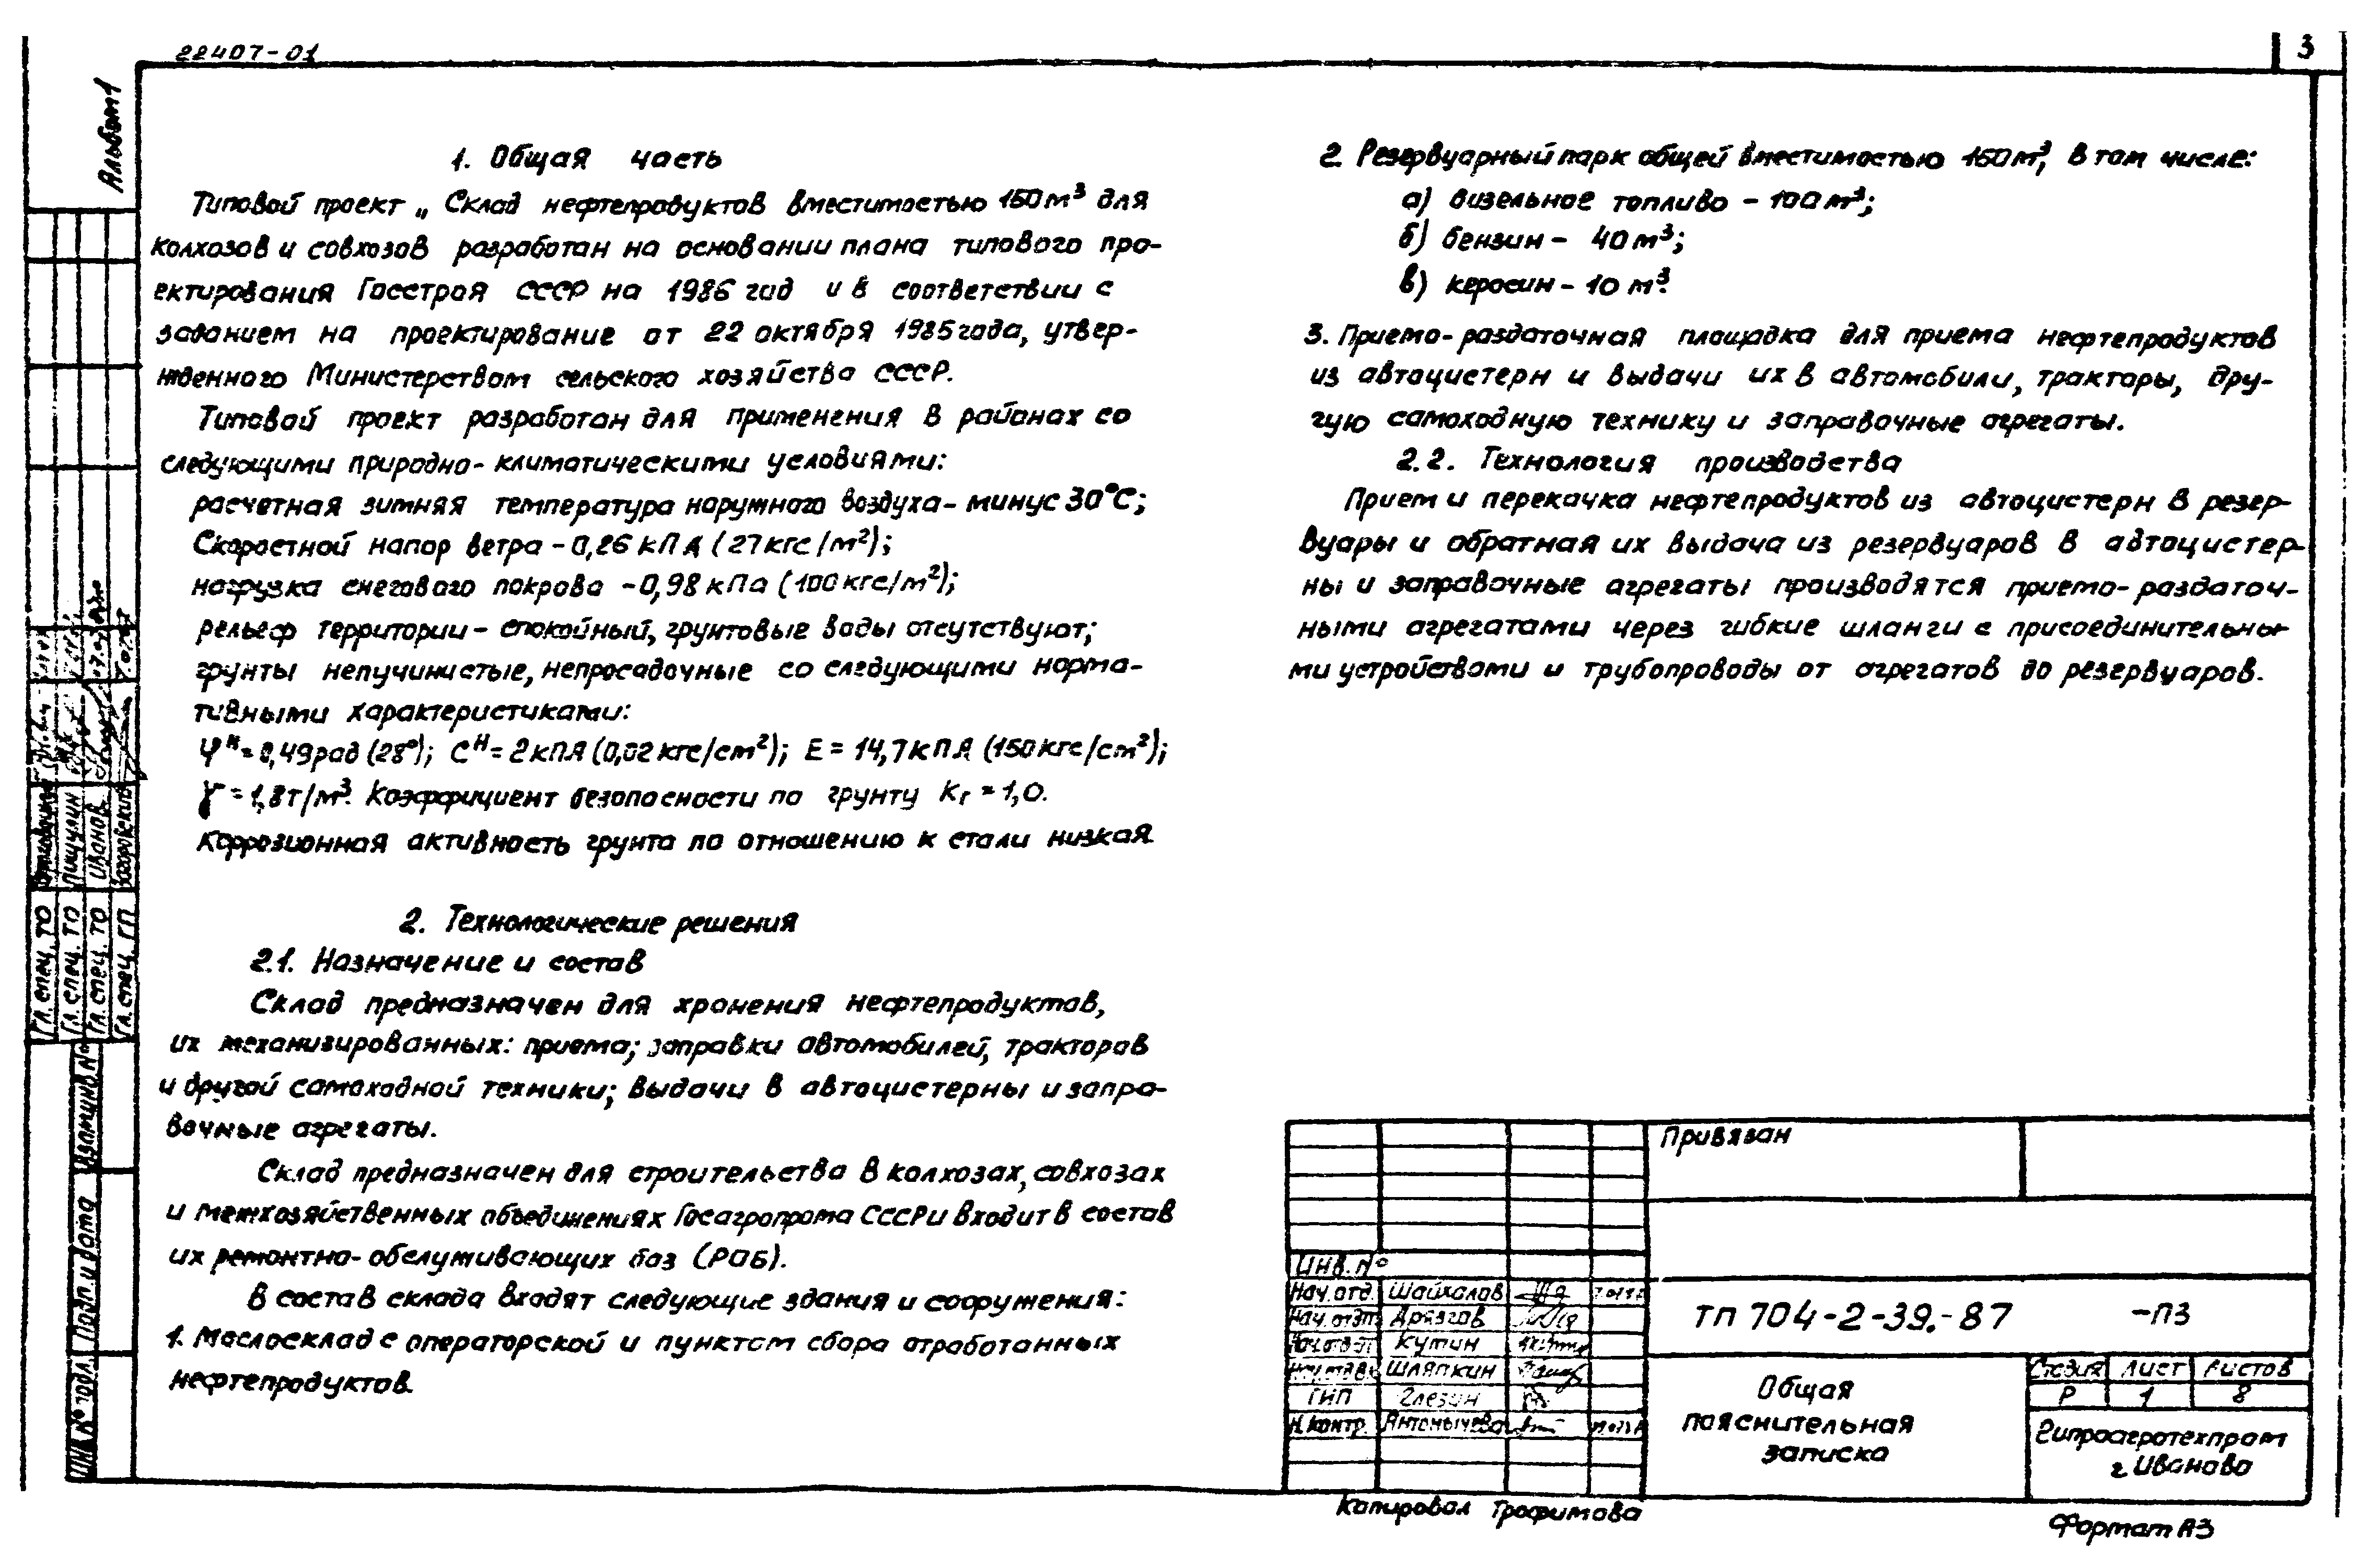 22407-01
3
Альбом 1
1. Общая часть
Типовой проект „ Склад нефтепродуктов вместимостью 150 м³ для
колхозов и совхозов разработан на основании плана типового про-
ектирования Госстроя СССР на 1986 год и в соответствии с
заданием на проектирование от 22 октября 1985 года, утвер-
жденного Министерством сельского хозяйства СССР.
Типовой проект разработан для применения в районах со
следующими природно-климатическими условиями:
расчетная зимняя температура наружного воздуха - минус 30°С;
Скоростной напор ветра - 0,26 кПА (27 кгс/м²);
нагрузка снегового покрова - 0,98 кПа (100 кгс/м²);
рельеф территории - спокойный, грунтовые воды отсутствуют;
грунты непучинистые, непросадочные со следующими норма-
тивными характеристиками:
φᴴ = 0,49 рад (28°); Cᴴ = 2 кПА (0,02 кгс/см²); E = 14,7 кПА (150 кгс/см²);
γ = 1,8 т/м³. Коэффициент безопасности по грунту Kг = 1,0.
Коррозионная активность грунта по отношению к стали низкая.
2. Технологические решения
2.1. Назначение и состав
Склад предназначен для хранения нефтепродуктов,
их механизированных: приема; заправки автомобилей, тракторов
и другой самоходной техники; выдачи в автоцистерны и запра-
вочные агрегаты.
Склад предназначен для строительства в колхозах, совхозах
и межхозяйственных объединениях Госагропрома СССР и входит в состав
их ремонтно-обслуживающих баз (РОБ).
В состав склада входят следующие здания и сооружения:
1. Маслосклад с операторской и пунктом сбора отработанных
нефтепродуктов.
2. Резервуарный парк общей вместимостью 150 м³, в том числе:
а) дизельное топливо - 100 м³;
б) бензин - 40 м³;
в) керосин - 10 м³.
3. Приемо-раздаточная площадка для приема нефтепродуктов
из автоцистерн и выдачи их в автомобили, тракторы, дру-
гую самоходную технику и заправочные агрегаты.
2.2. Технология производства
Прием и перекачка нефтепродуктов из автоцистерн в резер-
вуары и обратная их выдача из резервуаров в автоцистер-
ны и заправочные агрегаты производятся приемо-раздаточ-
ными агрегатами через гибкие шланги с присоединительны-
ми устройствами и трубопроводы от агрегатов до резервуаров.
Гл. спец. ТО
Гл. спец. ТО Пикулин
Гл. спец. ТО Иванов
Гл. спец. ГП
Взам. инв. №
Подп. и дата
Инв. № подл.
Привязан
Инв. №
Нач. отд. Шайхалов
Нач. отд. Дрязгов
Нач. отд. Кутин
Нач. отд. Шляпкин
ГИП Глезин
Н. контр. Антонычева
ТП 704-2-39.-87 -ПЗ
Общая
пояснительная
записка
Стадия Лист Листов
Р 1 8
Гипроагротехпром
г. Иваново
Копировал Трофимова
Формат А3